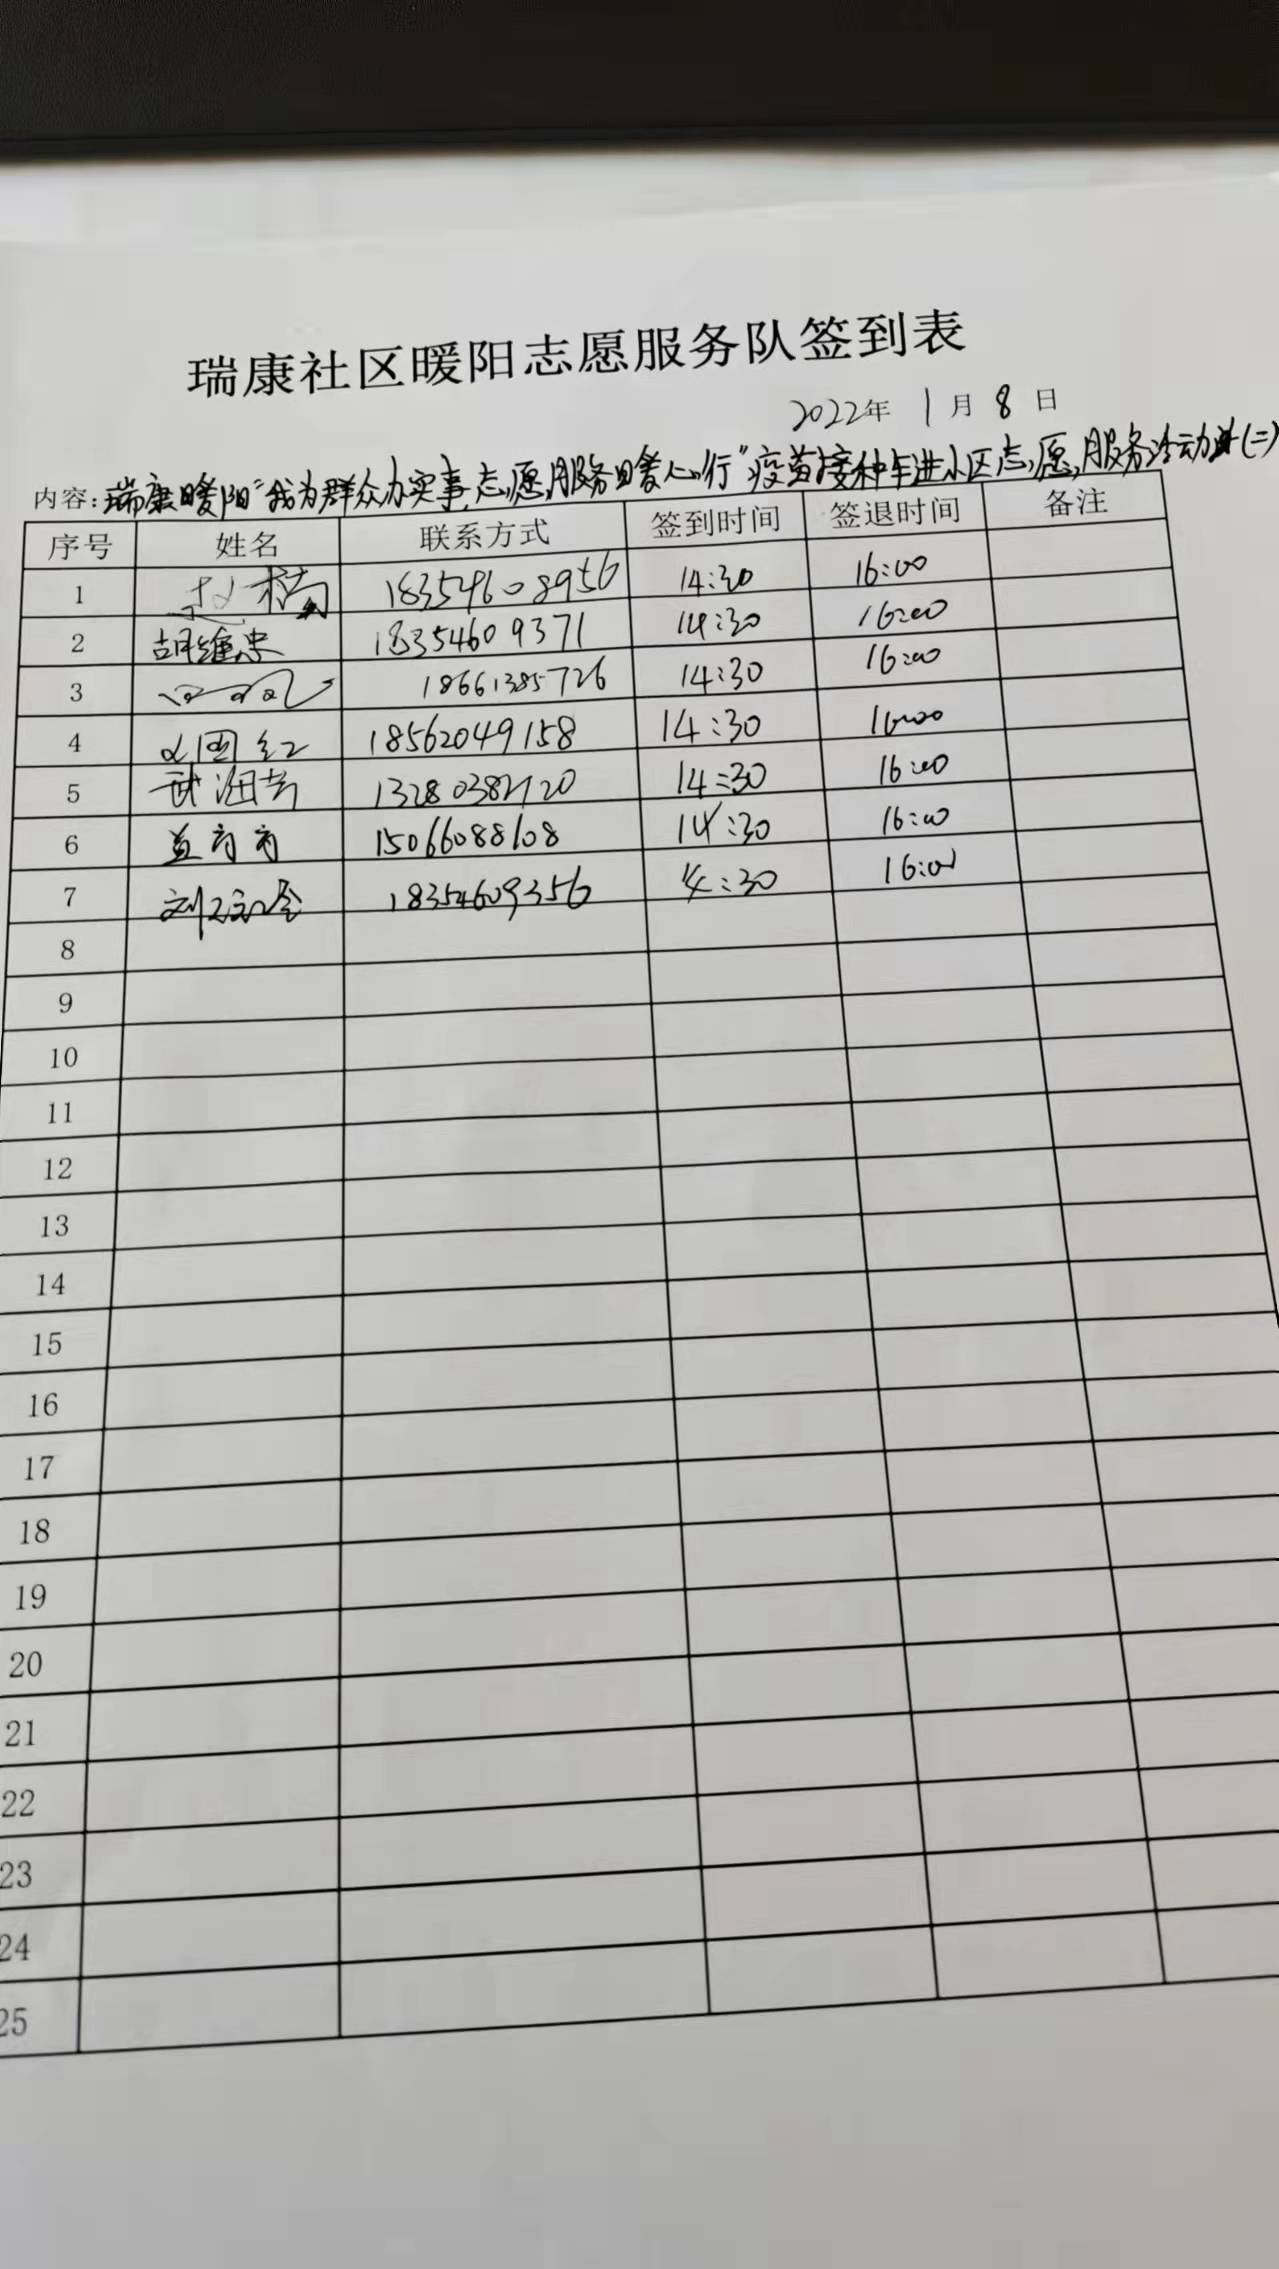 瑞康社区暖阳志愿服务队签到表
2022年 1月 8日
内容:瑞康暖阳"我为群众办实事,志愿服务暖心行"疫苗接种车进小区志愿服务活动(二)
序号 姓名 联系方式 签到时间 签退时间 备注
1 18354608956 14:30 16:00
2 胡维忠 18354609371 14:30 16:00
3 18661385726 14:30 16:00
4 国红 18562049158 14:30 16:00
5 武海芳 14:30 16:00
6 15066088608 14:30 16:00
7 刘 18354609356 14:30 16:00
8
9
10
11
12
13
14
15
16
17
18
19
20
21
22
23
24
25